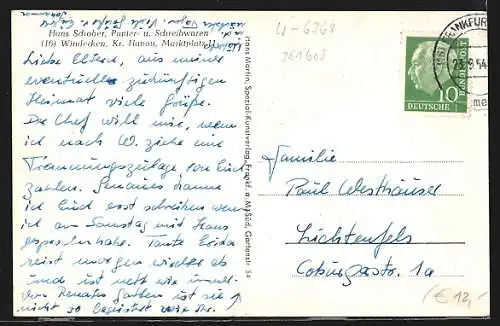 Hans Schober, Papier- u. Schreibwaren
(16) Windecken, Kr. Hanau, Marktplatz
Liebe Eltern, aus meiner
eventuellen zukünftigen
Heimat viele Grüße.
Der Chef will mir, wenn
ich nach W. ziehe eine
Trennungszulage, von
zahlen. Genaues kann
ich Euch erst schreiben wenn
ich am Samstag mit Hans
gesprochen habe. Tante
reist morgen wieder ab
und ist nett wie immer.
Von Renates Gatten ist sie
nicht so begeistert wie
Hans Martin, Spezial-Kunstverlag, Frankf. a. M.-Süd, Gartenstr.
U-6368
9E1608
FRANKFURT
(16)
23.9.54
DEUTSCHE
BUNDESPOST
10
Familie
Paul Westhäuser
Lichtenfels
Coburgerstr. 1a
(€ 12,-